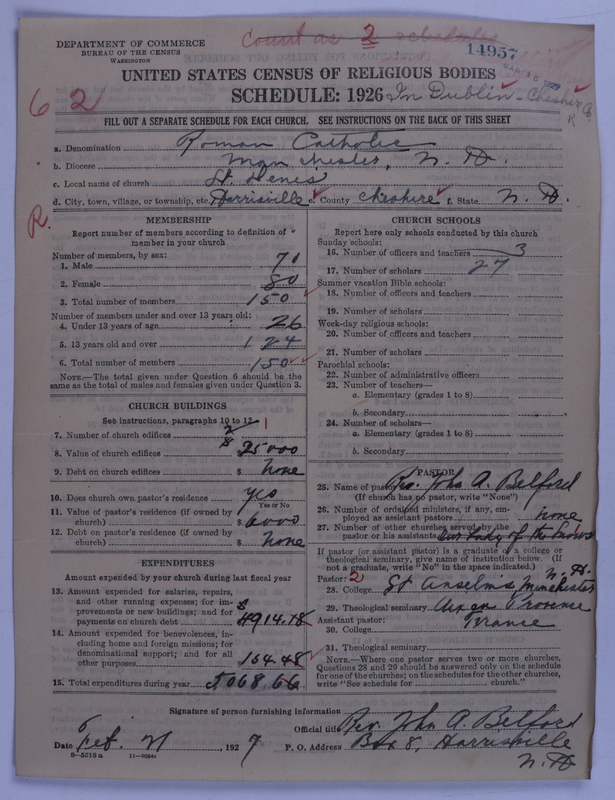 Count as 2 schedules
DEPARTMENT OF COMMERCE
BUREAU OF THE CENSUS
WASHINGTON
14957
UNITED STATES CENSUS OF RELIGIOUS BODIES
SCHEDULE: 1926 In Dublin - Cheshire Co.
R
62
FILL OUT A SEPARATE SCHEDULE FOR EACH CHURCH. SEE INSTRUCTIONS ON THE BACK OF THIS SHEET
a. Denomination Roman Catholic
b. Diocese Manchester, N. H.
c. Local name of church St. Denis
d. City, town, village, or township, etc. Harrisville e. County Cheshire f. State N. H.
R.
MEMBERSHIP
Report number of members according to definition of member in your church
Number of members, by sex:
1. Male 70
2. Female 80
3. Total number of members 150
Number of members under and over 13 years old:
4. Under 13 years of age 26
5. 13 years old and over 124
6. Total number of members 150
NOTE.—The total given under Question 6 should be the
same as the total of males and females given under Question 3.
CHURCH BUILDINGS
See instructions, paragraphs 10 to 12
7. Number of church edifices 2 1
8. Value of church edifices $ 25000
9. Debt on church edifices $ None
10. Does church own pastor's residence yes
Yes or No
11. Value of pastor's residence (if owned by
church) $ 6000
12. Debt on pastor's residence (if owned by
church) $ None
EXPENDITURES
Amount expended by your church during last fiscal year
13. Amount expended for salaries, repairs,
and other running expenses; for im-
provements or new buildings; and for
payments on church debt $ 4914.18
14. Amount expended for benevolences, in-
cluding home and foreign missions; for
denominational support; and for all
other purposes 154.48
15. Total expenditures during year 5068.66
CHURCH SCHOOLS
Report here only schools conducted by this church
Sunday schools:
16. Number of officers and teachers 3
17. Number of scholars 27
Summer vacation Bible schools:
18. Number of officers and teachers
19. Number of scholars
Week-day religious schools:
20. Number of officers and teachers
21. Number of scholars
Parochial schools:
22. Number of administrative officers
23. Number of teachers—
a. Elementary (grades 1 to 8)
b. Secondary
24. Number of scholars—
a. Elementary (grades 1 to 8)
b. Secondary
PASTOR
25. Name of pastor Rev. John A. Belford
(If church has no pastor, write "None")
26. Number of ordained ministers, if any, em-
ployed as assistant pastors none
27. Number of other churches served by the
pastor or his assistants Our Lady of the Snows
If pastor (or assistant pastor) is a graduate of a college or
theological seminary, give name of institution below. (If
not a graduate, write "No" in the space indicated.) N. H.
Pastor: 2
28. College St Anselm's Manchester
29. Theological seminary Aix en Provence
Assistant pastor: France
30. College
31. Theological seminary
NOTE.—Where one pastor serves two or more churches,
Questions 28 and 29 should be answered only on the schedule
for one of the churches; on the schedules for the other churches,
write "See schedule for church."
Signature of person furnishing information
Official title Rev. John A. Belford
Date Feb. 21, 1927 P. O. Address Box 8, Harrisville
N. H.
8-5513a 11-9084